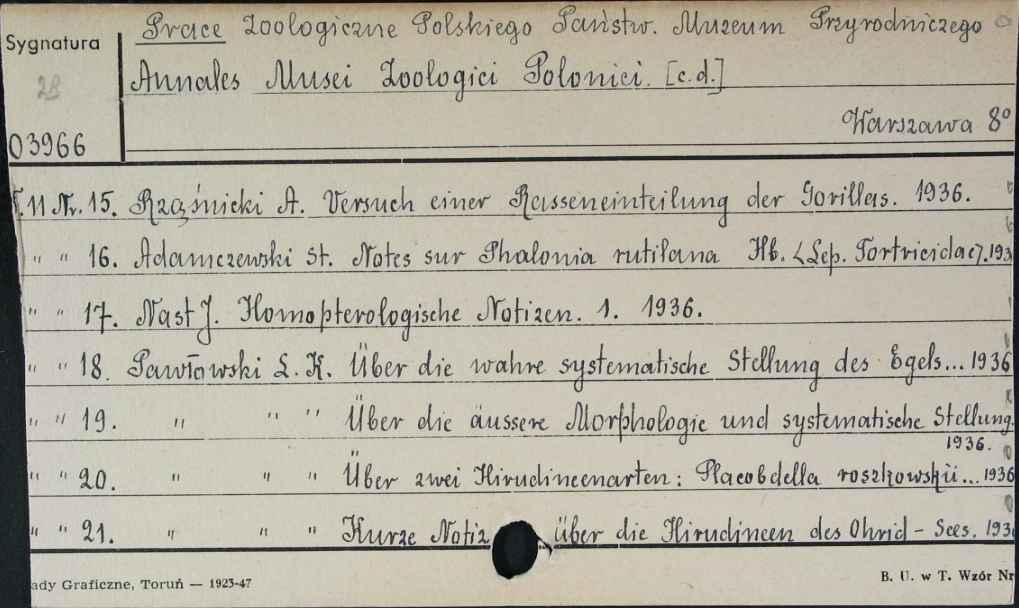 Prace Zoologiczne Polskiego Państw. Muzeum Przyrodniczego
Sygnatura
Annales Musei Zoologici Polonici. [c.d.]
Warszawa 8°
03966
T. 11 Nr. 15. Rzaśnicki A. Versuch einer Rasseneinteilung der Gorillas. 1936.
" " 16. Adamczewski St. Notes sur Phalonia rutilana Hb. <Lep. Tortricidae>. 193
" " 17. Nast J. Homopterologische Notizen. 1. 1936.
" " 18. Pawłowski L. K. Über die wahre systematische Stellung des Egels... 1936
" " 19. " " " Über die äussere Morphologie und systematische Stellung.
1936.
" " 20. " " " Über zwei Hirudineenarten: Placobdella roszkowskii... 1936
" " 21. " " " Kurze Notiz über die Hirudineen des Ohrid - Sees. 193
ady Graficzne, Toruń — 1923-47
B. U. w T. Wzór Nr